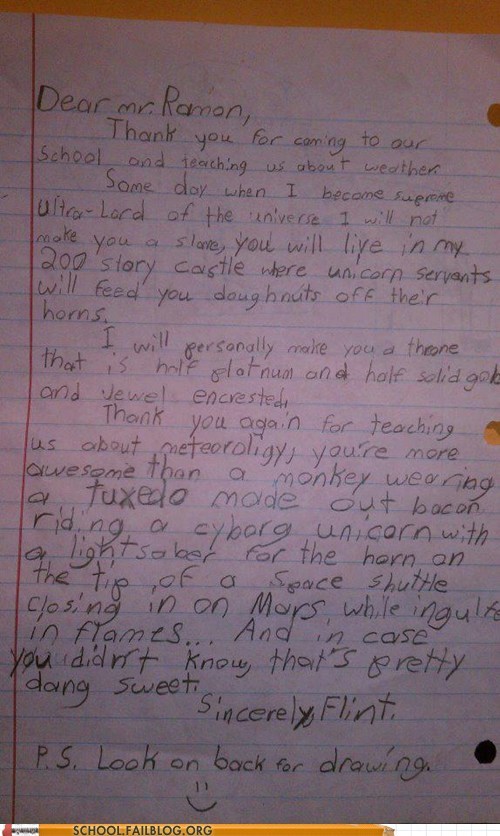 Dear mr. Ramon,
Thank you for coming to our
School and teaching us about weather.
Some day when I become supreme
Ultra-Lord of the universe I will not
make you a slave, you will live in my
200 story castle where unicorn servants
will feed you doughnuts off their
horns.
I will personally make you a throne
that is half platnum and half solid gold
and Jewel encrested.
Thank you again for teaching
us about meteoroligy, you're more
awesome than a monkey wearing
a tuxedo made out bacon
riding a cyborg unicorn with
a lightsaber for the horn on
the tip of a space shuttle
closing in on Mars, while ingulfe
in flames... And in case
you didn't know, that's pretty
dang sweet.
Sincerely, Flint.
P.S. Look on back for drawing.
SCHOOL.FAILBLOG.ORG